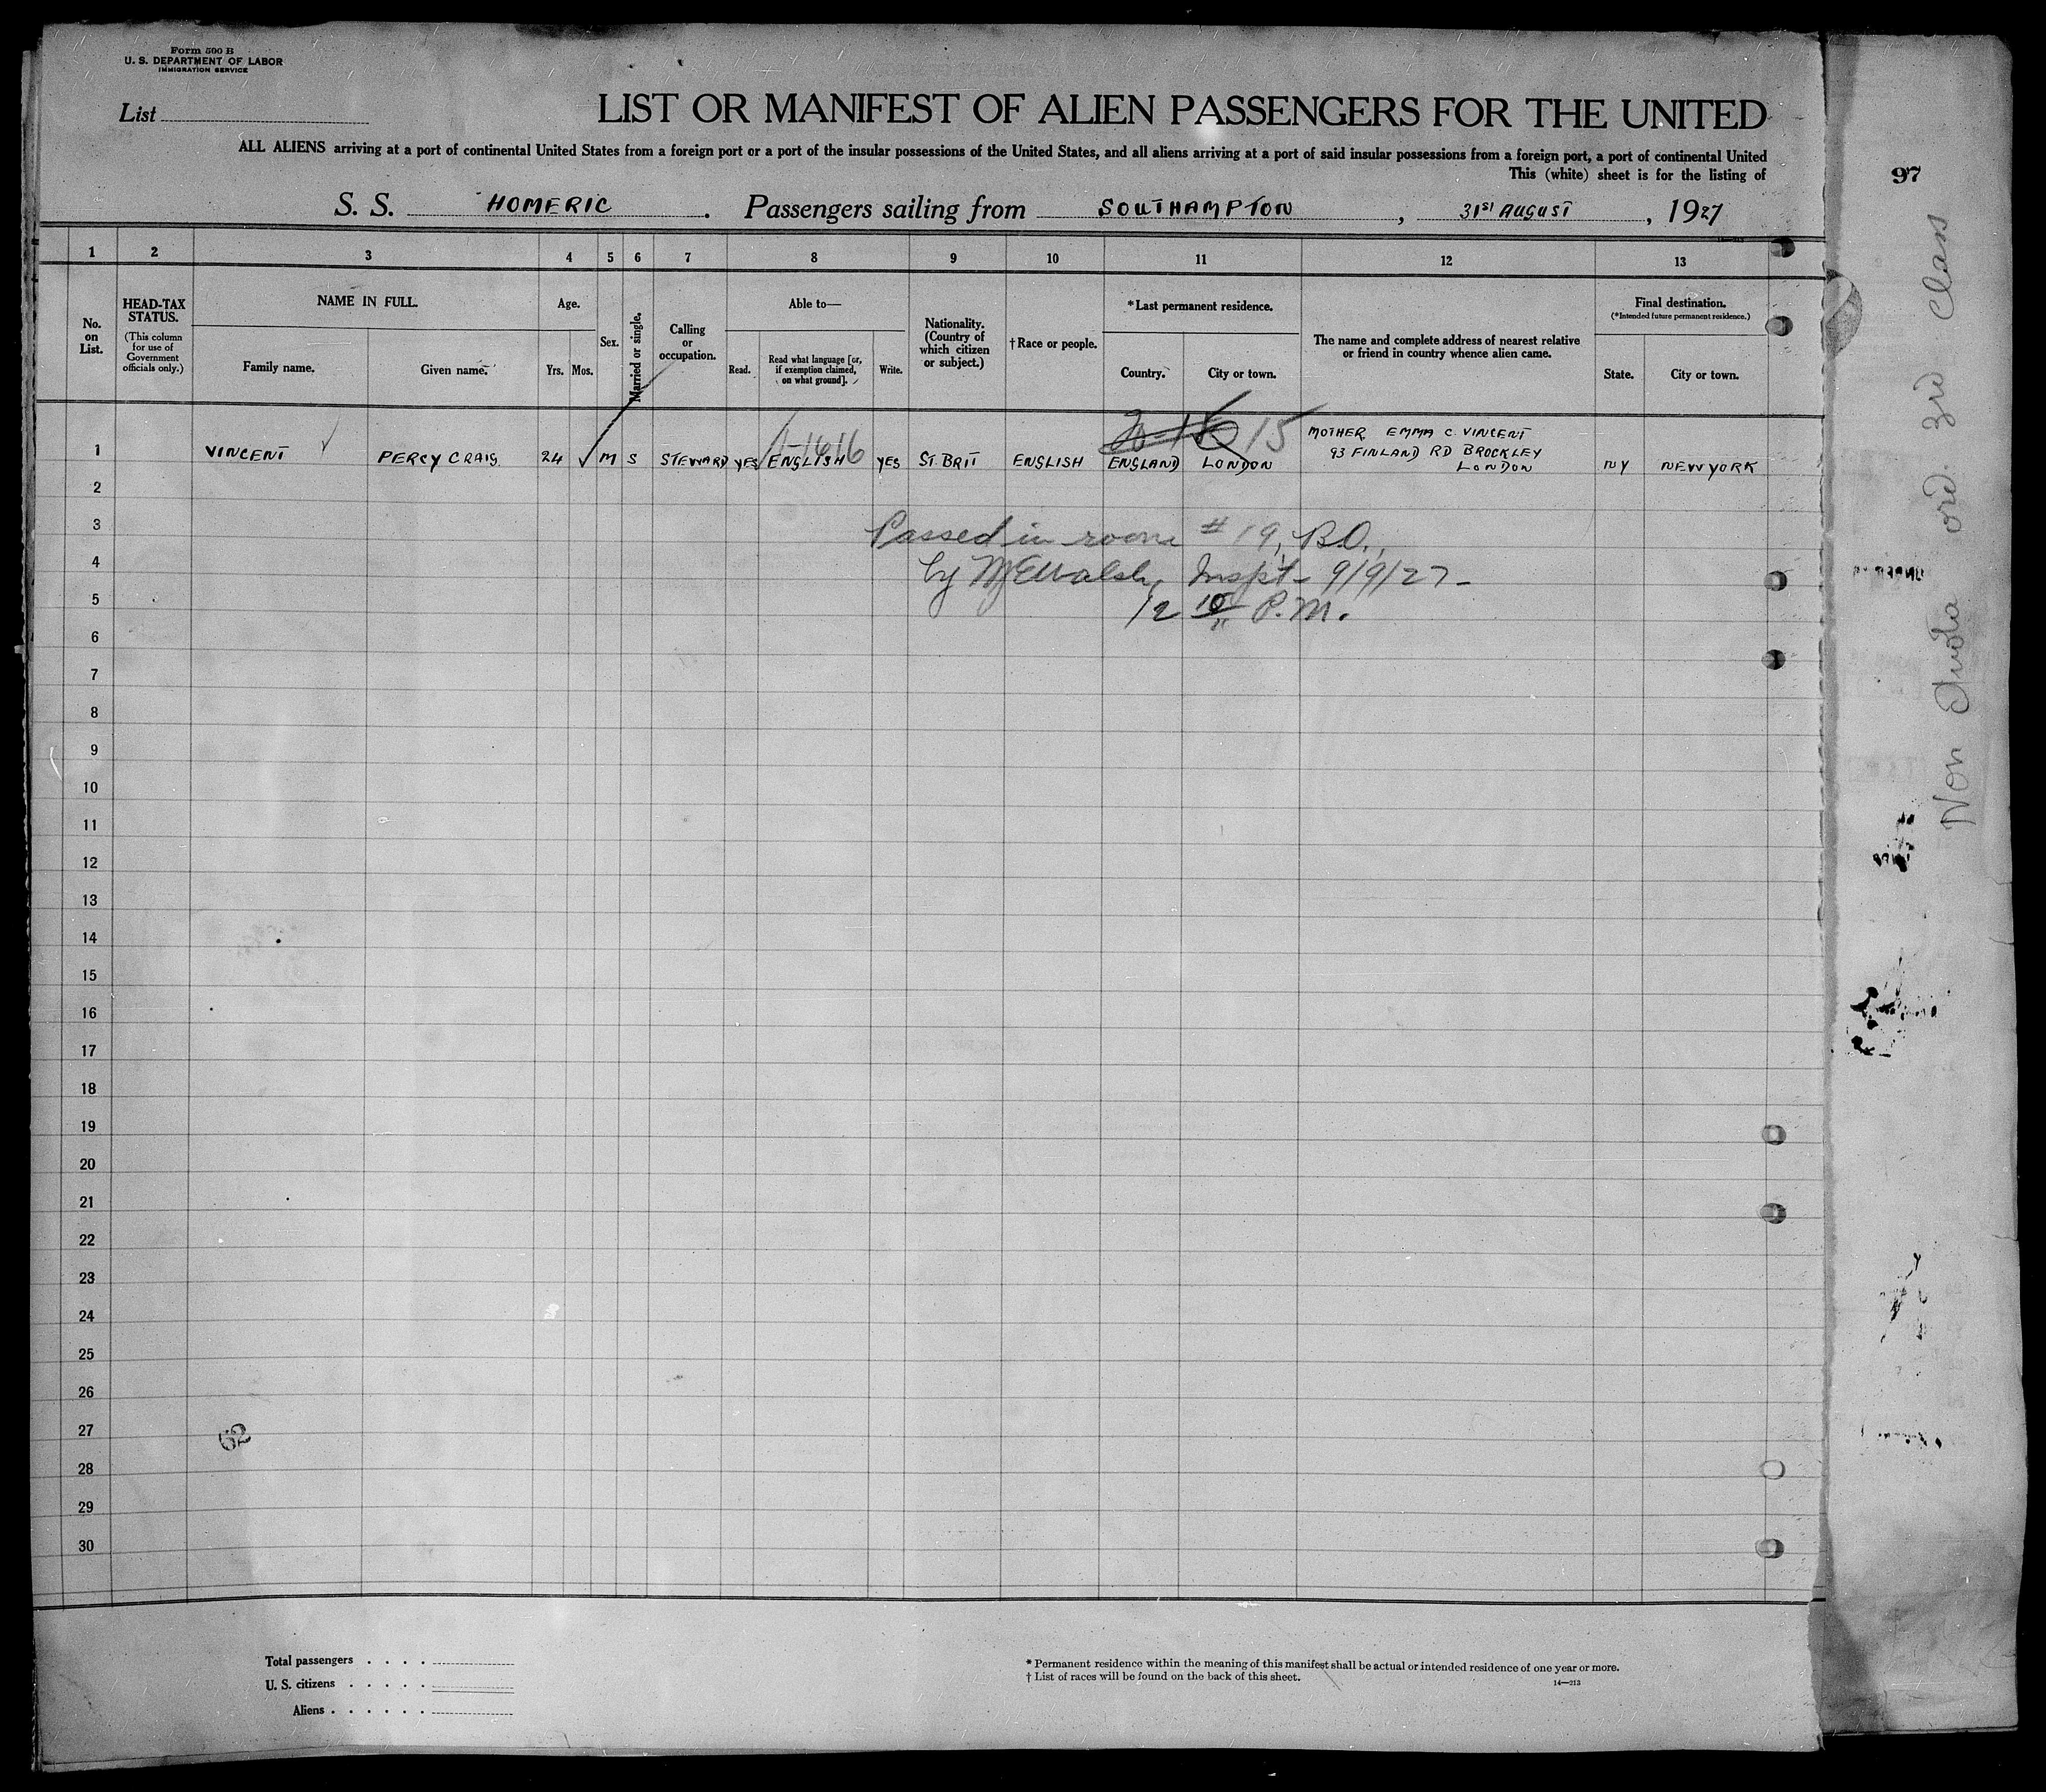 Form 500 B
U. S. DEPARTMENT OF LABOR
IMMIGRATION SERVICE
List
LIST OR MANIFEST OF ALIEN PASSENGERS FOR THE UNITED
ALL ALIENS arriving at a port of continental United States from a foreign port or a port of the insular possessions of the United States, and all aliens arriving at a port of said insular possessions from a foreign port, a port of continental United
This (white) sheet is for the listing of
97
S. S. HOMERIC. Passengers sailing from SOUTHAMPTON, 31ST AUGUST, 1927
1 2 3 4 5 6 7 8 9 10 11 12 13
No. on List.
HEAD-TAX STATUS.
(This column for use of Government officials only.)
NAME IN FULL.
Family name. Given name.
Age.
Yrs. Mos.
Sex.
Married or single.
Calling or occupation.
Able to—
Read. Read what language [or, if exemption claimed, on what ground]. Write.
Nationality. (Country of which citizen or subject.)
† Race or people.
*Last permanent residence.
Country. City or town.
The name and complete address of nearest relative or friend in country whence alien came.
Final destination.
(*Intended future permanent residence.)
State. City or town.
15
1 VINCENT PERCY CRAIG 24 M S STEWARD YES ENGLISH YES ST. BRIT ENGLISH ENGLAND LONDON MOTHER EMMA C. VINCENT
93 FINLAND RD BROCKLEY
LONDON NY NEW YORK
2
3
Passed in room # 19, B.O.,
4
by Walsh, Inspt - 9/9/27 -
5
12 10 P.M.
6
7
8
9
10
11
12
13
14
15
16
17
18
19
20
21
22
23
24
25
26
27
62
28
29
30
Non Quota ord. 3rd Class
Total passengers . . . .
U. S. citizens . . . . .
Aliens . . . . . .
* Permanent residence within the meaning of this manifest shall be actual or intended residence of one year or more.
† List of races will be found on the back of this sheet.
14—213